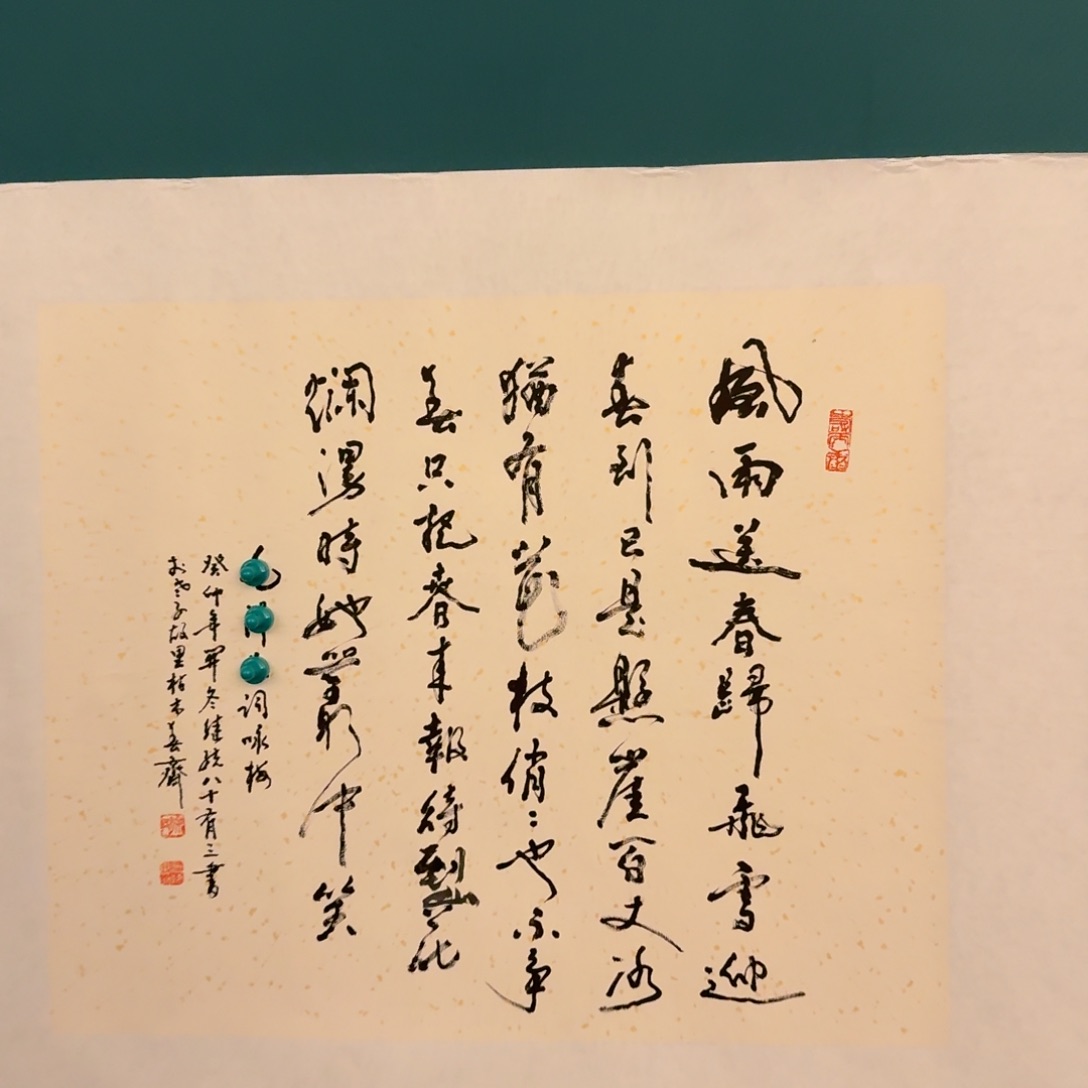 風雨送春歸飛雪迎
春到已是懸崖百丈冰
猶有花枝俏〻也不爭
春只把春來報待到山花
爛漫時她叢中笑
詞咏梅
癸卯年冬八十有三書
於老子故里枯木春齋